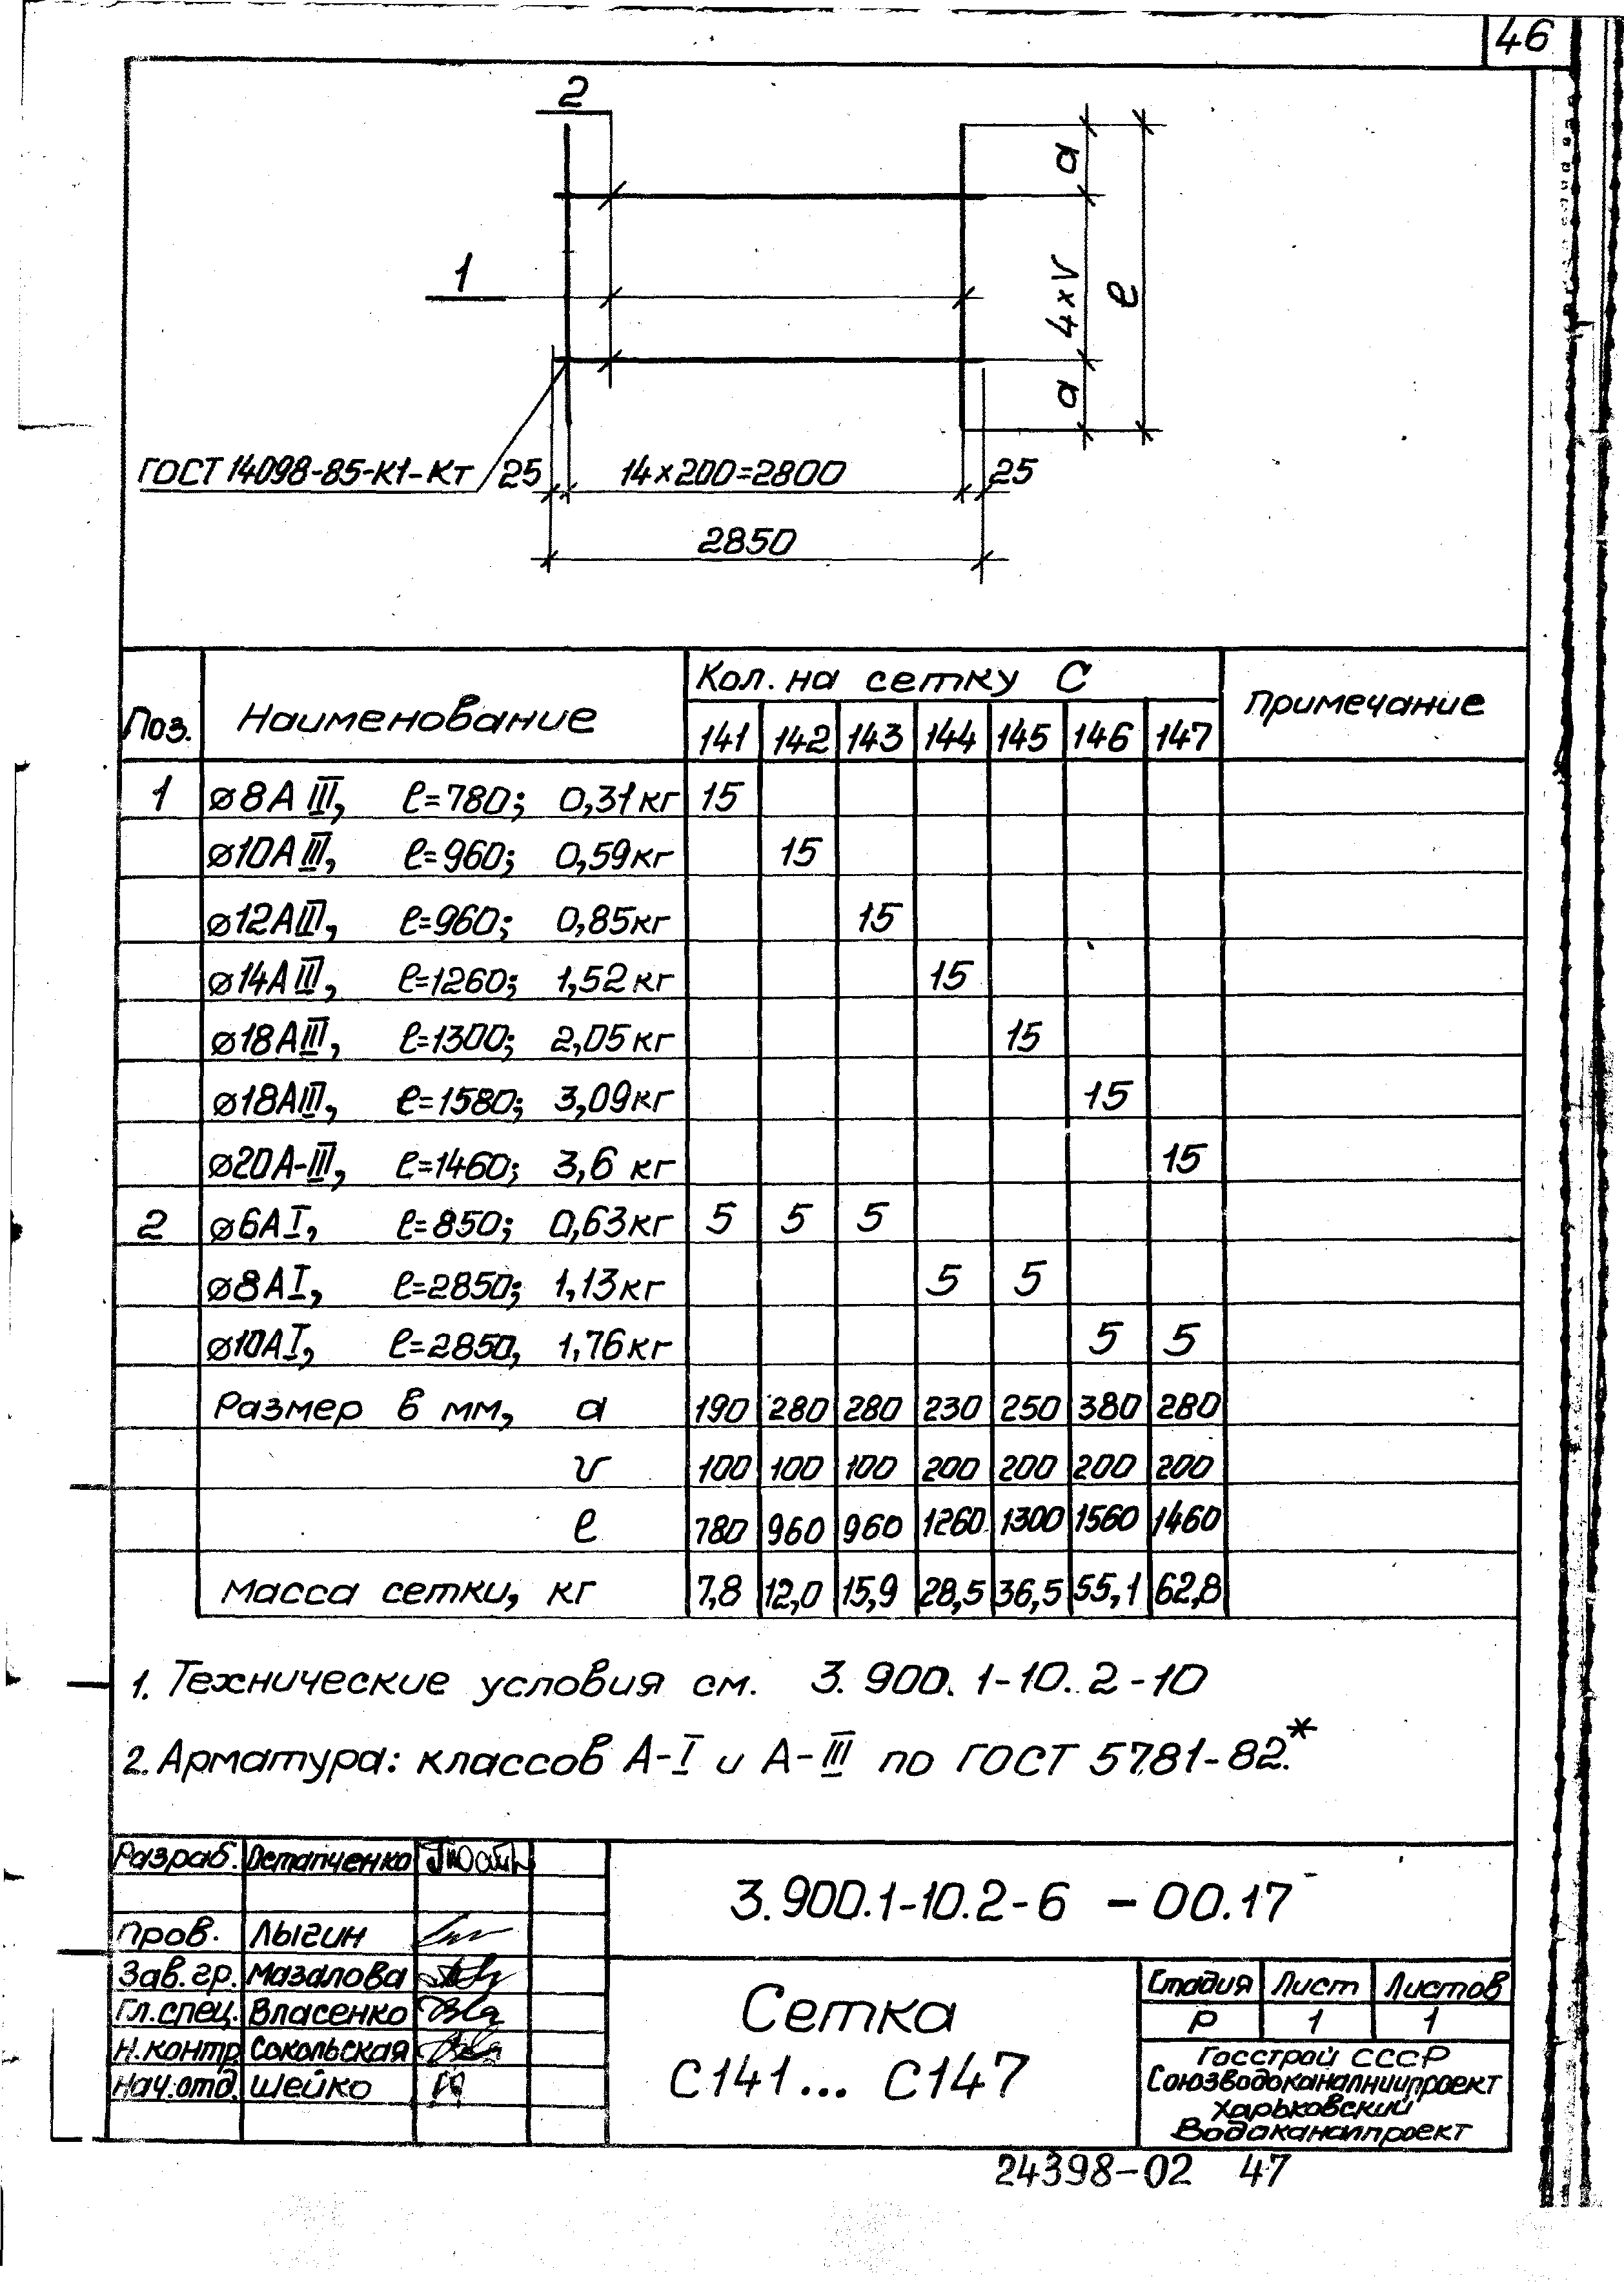 46
2
a
1
4×v
ℓ
a
ГОСТ 14098-85-К1-Кт 25 14×200=2800 25
2850
Поз. Наименование Кол. на сетку С Примечание
141 142 143 144 145 146 147
1 ⌀8А III, ℓ=780; 0,31кг 15
⌀10А III, ℓ=960; 0,59кг 15
⌀12АIII, ℓ=960; 0,85кг 15
⌀14А III, ℓ=1260; 1,52кг 15
⌀18АIII, ℓ=1300; 2,05кг 15
⌀18АIII, ℓ=1580; 3,09кг 15
⌀20А-III, ℓ=1460; 3,6 кг 15
2 ⌀6АI, ℓ=850; 0,63кг 5 5 5
⌀8АI, ℓ=2850; 1,13кг 5 5
⌀10АI, ℓ=2850, 1,76кг 5 5
Размер в мм, а 190 280 280 230 250 380 280
v 100 100 100 200 200 200 200
ℓ 780 960 960 1260 1300 1560 1460
Масса сетки, кг 7,8 12,0 15,9 28,5 36,5 55,1 62,8
1. Технические условия см. 3.900.1-10.2-10
2. Арматура: классов А-I и А-III по ГОСТ 5781-82.*
Разраб. Остапченко
Пров. Лыгин
Зав.гр. Мазалова
Гл.спец. Власенко
Н.контр. Сокольская
Нач.отд. Шейко
3.900.1-10.2-6 -00.17
Сетка
С141... С147
Стадия Лист Листов
Р 1 1
Госстрой СССР
Союзводоканалниипроект
Харьковский
Водоканалпроект
24398-02 47